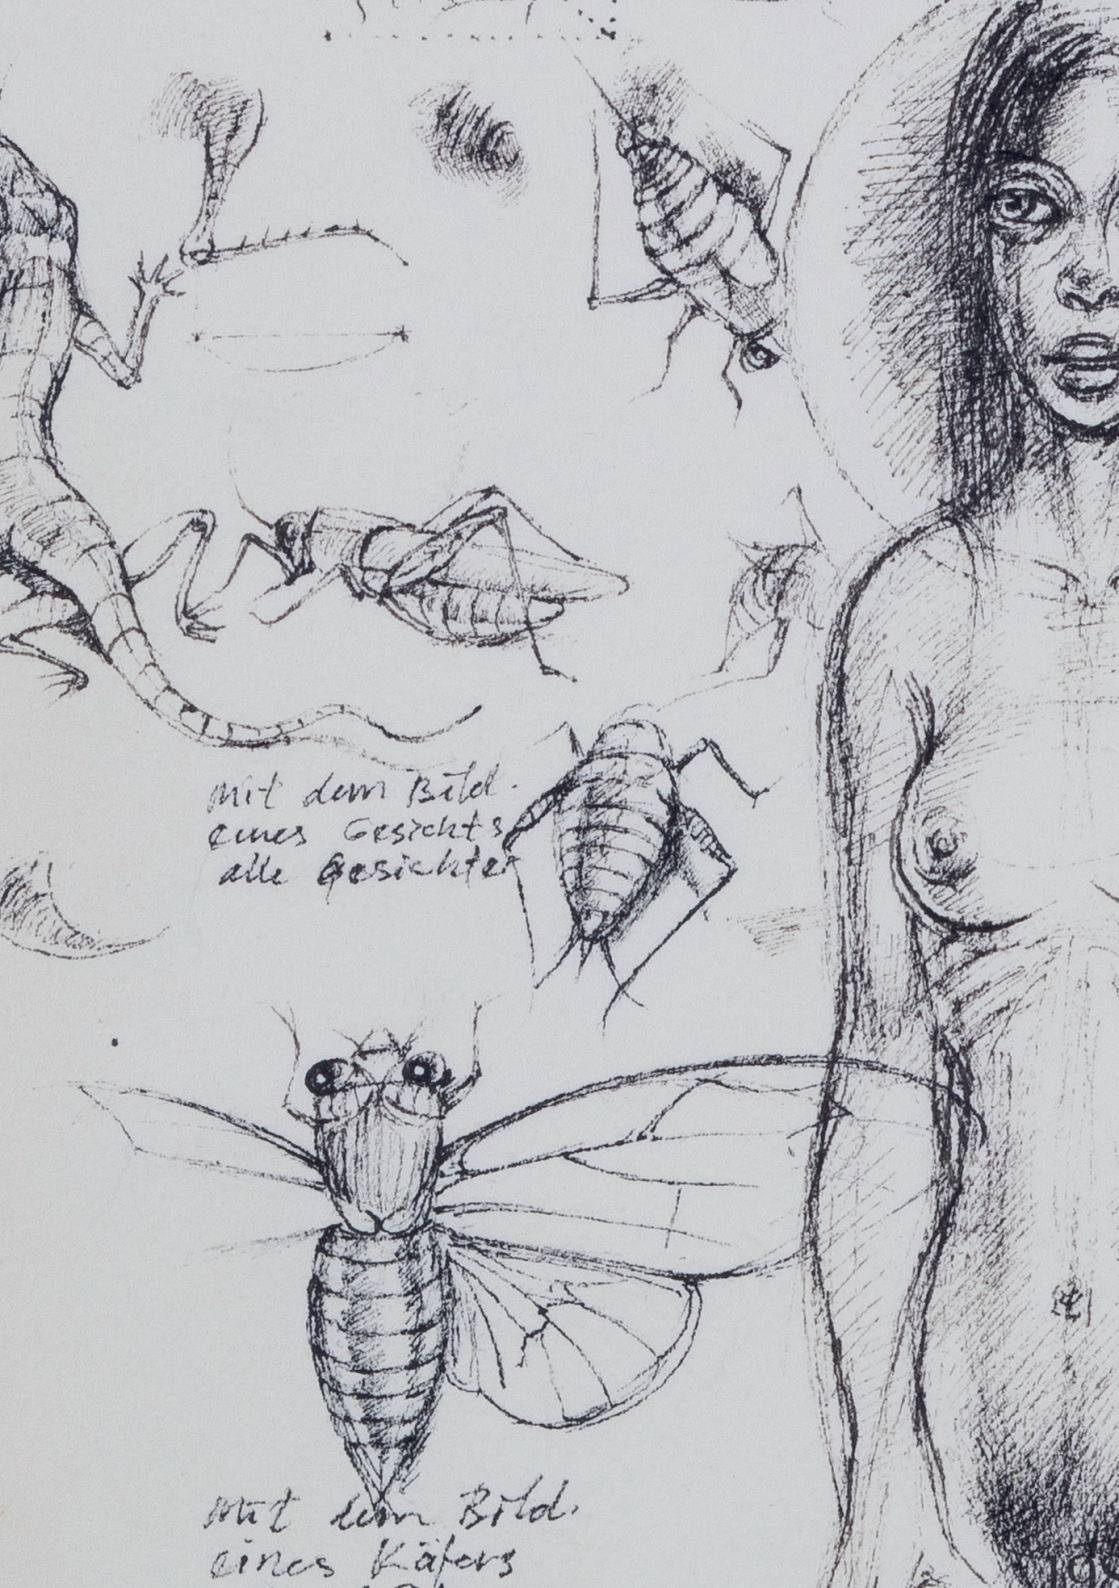 Mit dem Bild.
eines Gesichts
alle Gesichter
Mit dem Bild.
eines Käfers
198